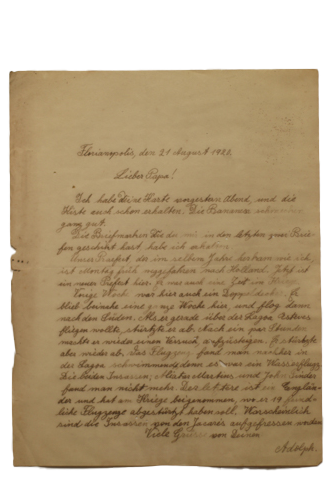 Florianopolis, den 21 August 1923.
Lieber Papa!
Ich habe Deine Karte vorgestern Abend, und die
Kiste auch schon erhalten. Die Bananen schmecken
ganz gut.
Die Briefmarken die Du mir in den letzten zwei Brie-
fen geschickt hast habe ich erhalten.
Unser Präfekt, da im selben Jahr
ist Montag früh weggefahren nach Holland. Jetzt ist
ein neuer Präfekt hier. Er war auch eine Zeit
Vorige Woche war hier auch ein Doppeldecker. Er
blieb beinahe eine Woche hier, und flog dann
nach dem Süden. Als er gerade über der Lagoa
fliegen wollte, stürzte er ab. Nach ein paar Stunden
machte er wieder einen Versuch aufzusteigen. Er stürzte
aber wieder ab. Das Flugzeug fand man nachher in
der Lagoa schwimmend, denn es war ein Wasserflugz.
Die beiden Insassen, und John Pinder
fand man nicht mehr. Der letztere ist ein Englän-
der und hat am Kriege teilgenommen, wo er 19 feind-
liche Flugzeuge abgestürzt haben soll. Warscheinlich
sind die Insassen von den Jacarés aufgefressen worden.
Viele Grüsse von Deinem
Adolph.